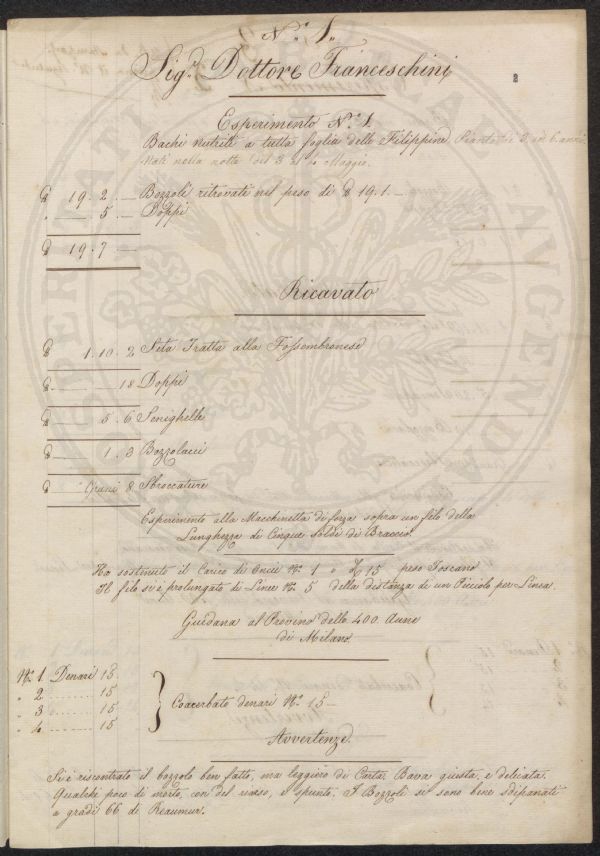 N.º 1.
Sig.r Dottore Franceschini
2
Esperimento N.º 1.
Bachi nutriti a tutta foglia delle Filippine Piante di 3, in 6. anni
Nati nella notte del 3 al 4 Maggio
19. 2. — Bozzoli ritrovati nel peso di 19. 1. —
" — 5. — Doppi
19. 7 —
Ricavato
1. 10. 2 Seta Tratta alla Fossembronese
18 Doppi
5. 6 Senighelle
1. 3 Bozzolacci
" Grani 8 Sbroccature
Esperimento alla Macchinetta di forza sopra un filo della
Lunghezza di Cinque Soldi di Braccio.
Ha sostenuto il Carico di Oncie N.º 1 e 15 peso Toscano
Il filo si è prolungato di Linee N.º 5 della distanza di un Picciolo per Linea.
Guidana al Provino delle 400. Aune
di Milano
N.º 1 Denari 15.
" 2 ........ 15
" 3 ........ 15
" 4 ........ 15
Coacerbato denari N.º 15 —
Avvertenze.
Si è riscontrato il bozzolo ben fatto, ma leggiero di Carta. Bava giusta, e delicata.
Qualche poco di morto, con del roso, e spunta. I Bozzoli si sono bene sdipanati
a gradi 66 di Reaumur.